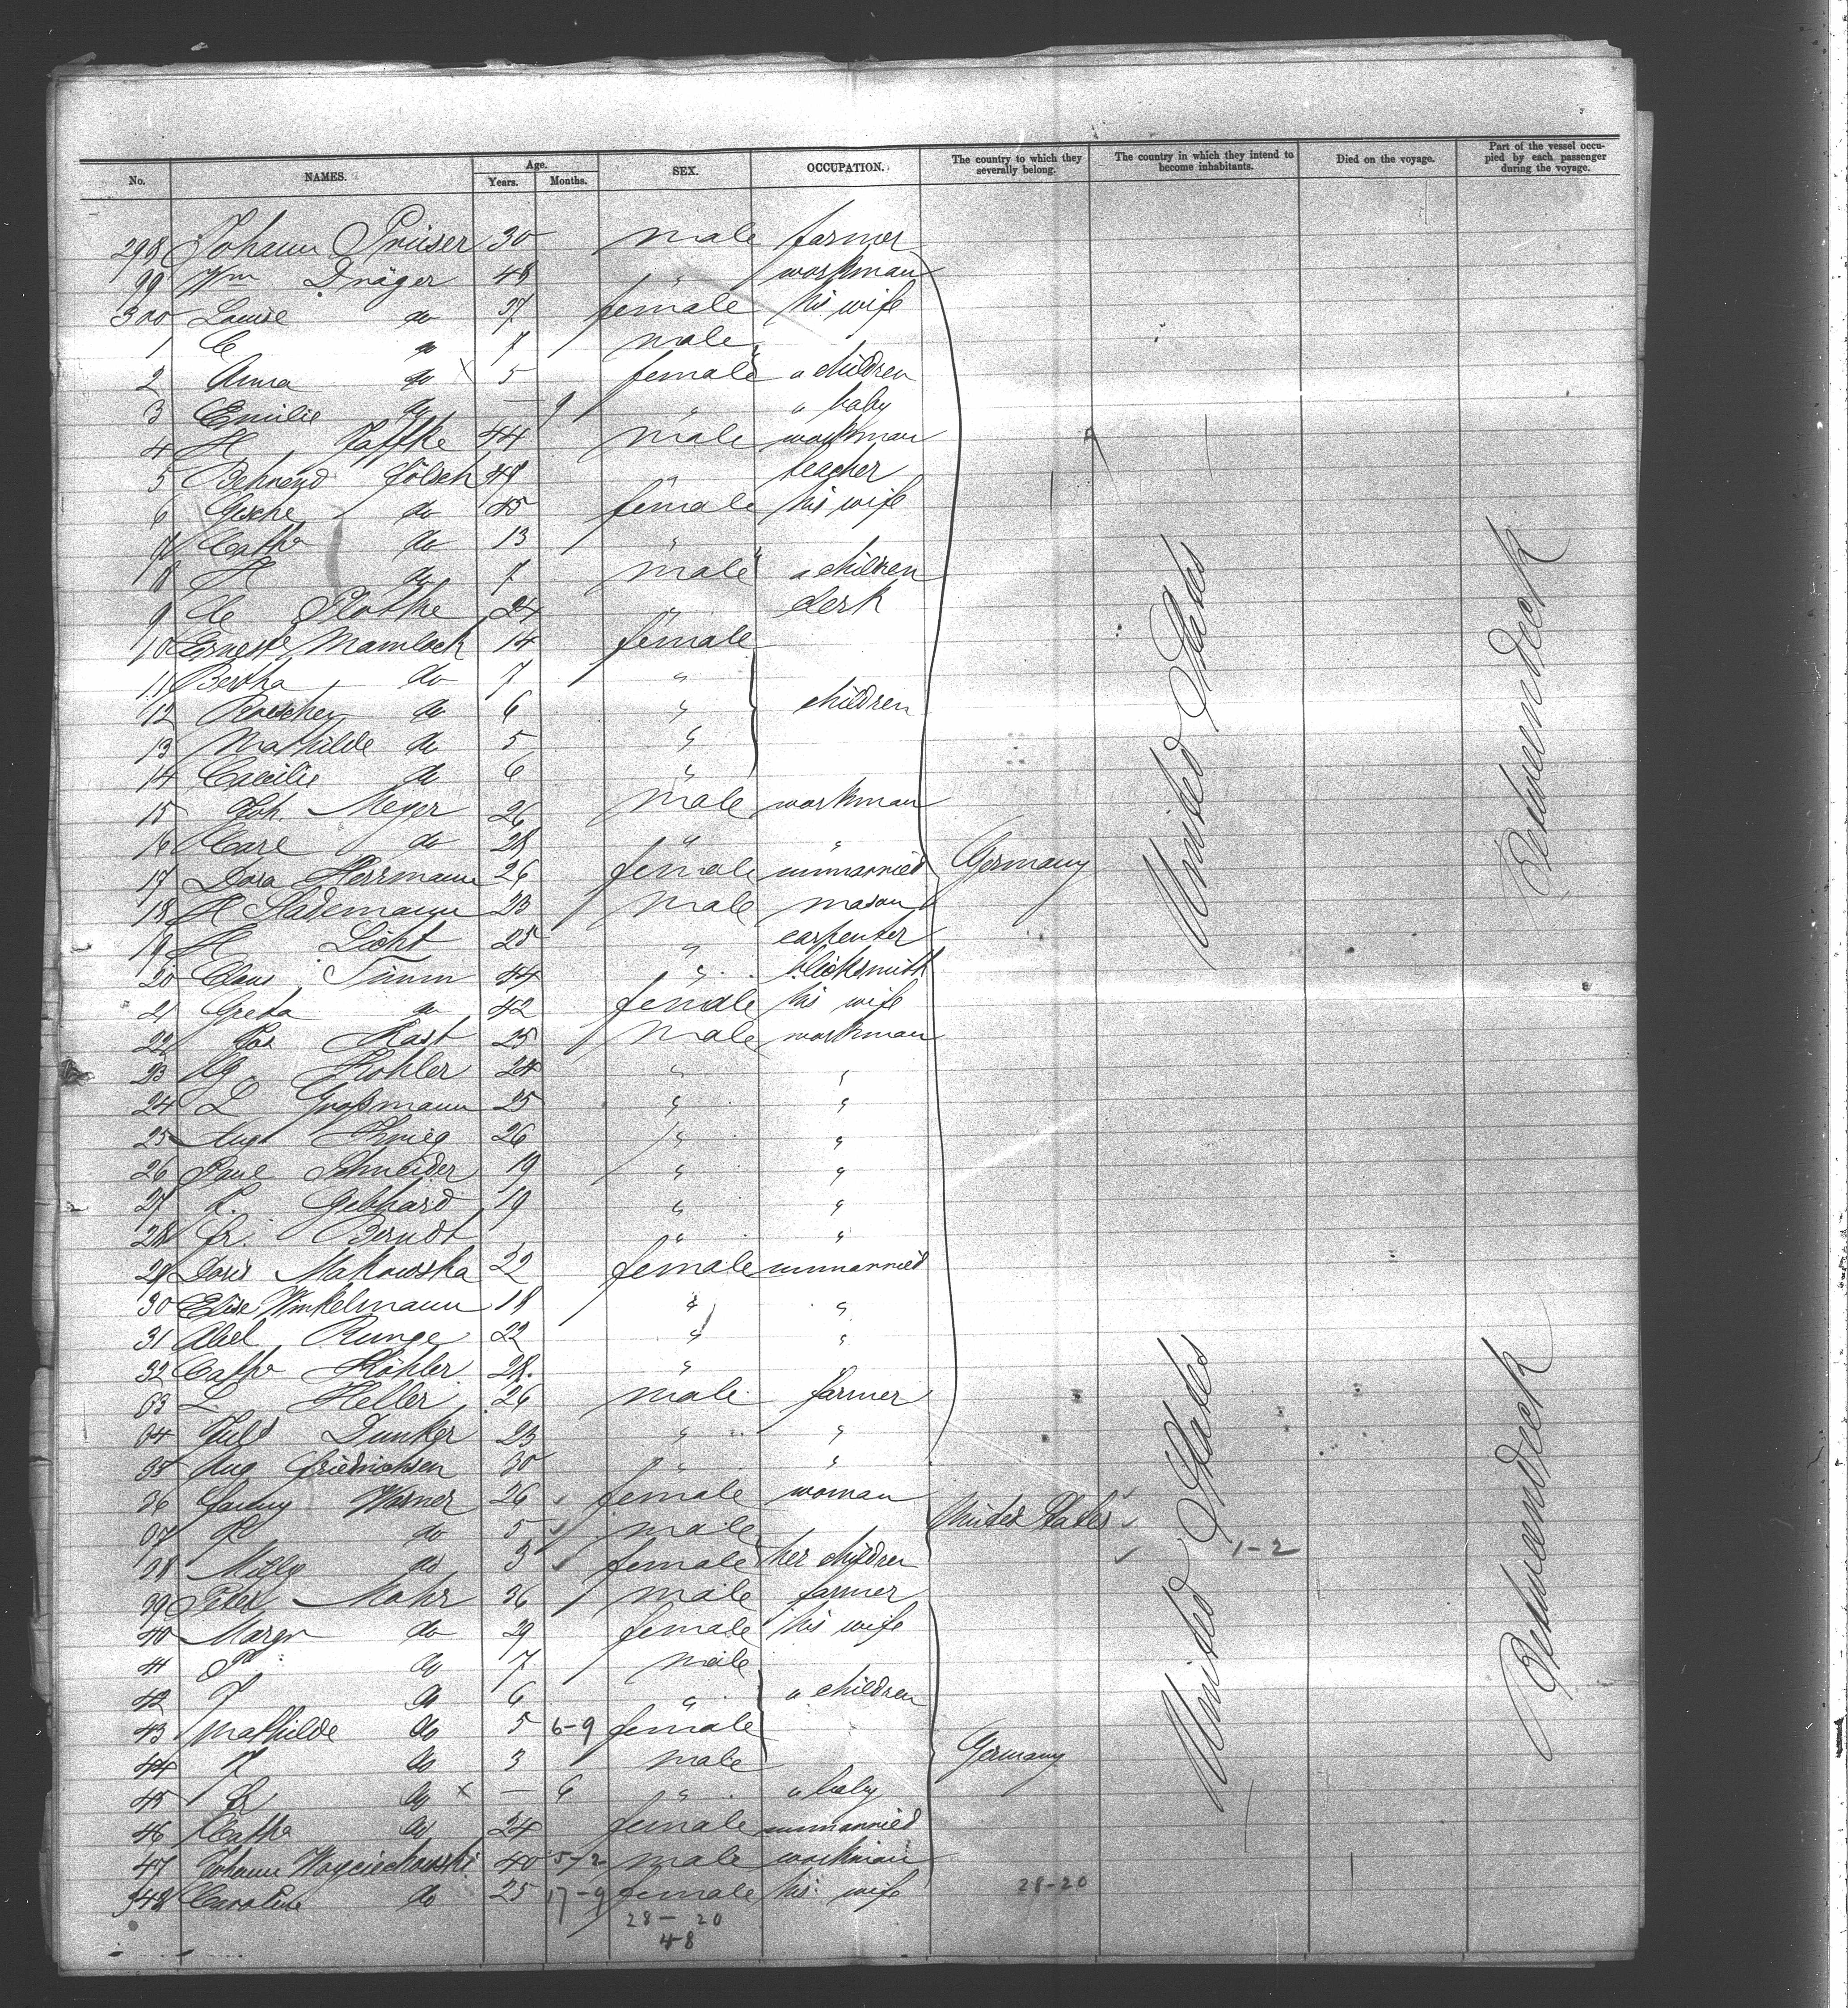 No. NAMES. Age. Years. Months. SEX. OCCUPATION. The country to which they severally belong. The country in which they intend to become inhabitants. Died on the voyage. Part of the vessel occupied by each passenger during the voyage.
298 Johann Prüser 30 male farmer
99 Wm Dräger 48 " workman
300 Louise do 37 female his wife
1 C do 7 male
2 Anna do 5 female " children
3 Emilie do — 9 " " baby
4 H Taffke 44 male workman
5 Behrend Fölsch 48 " teacher
6 Gesche do 45 female his wife
7 Cathe do 13 "
8 H do 7 male " children
9 C Plothe 24 " clerk
10 Ernestie Mamlock 14 female
11 Bertha do 7 "
12 do 6 " children
13 Mathilde do 5 "
14 Caecilie do 6 "
15 Joh. Meyer 26 male workman
16 Carl do 28 " "
17 Dora Herrmann 26 female unmarried Germany
18 H Stademann 23 male mason
19 H Licht 25 " carpenter
20 Claus Timm 44 " blicksmith
21 Greta do 42 female his wife
22 Kast 25 male workman
23 Kohler 24 " "
24 L Großmann 25 " "
25 Aug Krieg 26 " "
26 Paul Schneider 19 " "
27 K. Gebhard 19 " "
28 Fr. Berndt " "
29 Doris Makowska 22 female unmarried
30 Elise Winkelmann 18 " "
31 Abel Runge 22 " "
32 Cathe Köhler 28. "
33 L. Heller 26 male farmer
34 Juls Dunker 23 " "
35 Aug Friedrichsen 30 " "
36 Fanny Warner 26 female woman
37 do 5 male United States
38 Milly do 3 female her children 1-2
39 Peter Mohr 36 male farmer
40 Margr do 29 female his wife
41 do 7 male
42 J do 6 " " children
43 Mathilde do 5 6-9 female
44 J do 3 male Germany
45 Fr do — 6 " " baby
46 Cathe do 24 female unmarried
47 Johann Woyciechowski 40 5-2 male workman
348 Caroline do 25 17-9 female his wife 28-20
28-20
48
United States
Betweendeck
United States
Betweendeck